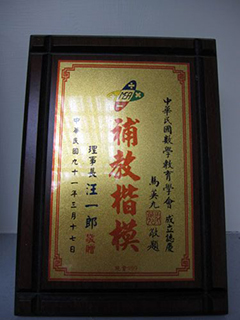 中華民國數學教育學會 成立誌慶
馬英九 敬題
補教楷模
理事長 汪一郎 敬贈
中華民國九十一年三月十七日